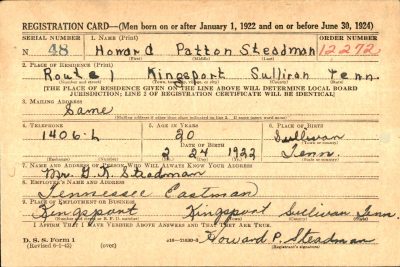 REGISTRATION CARD—(Men born on or after January 1, 1922 and on or before June 30, 1924)
SERIAL NUMBER 1. NAME (Print) ORDER NUMBER
N 48 Howard Patton Steadman 12272
(First) (Middle) (Last)
2. PLACE OF RESIDENCE (Print)
Route 1 Kingsport Sullivan Tenn.
(Number and street) (Town, township, village, or city) (County) (State)
[THE PLACE OF RESIDENCE GIVEN ON THE LINE ABOVE WILL DETERMINE LOCAL BOARD
JURISDICTION; LINE 2 OF REGISTRATION CERTIFICATE WILL BE IDENTICAL]
3. MAILING ADDRESS
Same
(Mailing address if other than place indicated on line 2. If same insert word same)
4. TELEPHONE 5. AGE IN YEARS 6. PLACE OF BIRTH
1406-L 20 Sullivan
DATE OF BIRTH (Town or county)
2 24 1922 Tenn.
(Exchange) (Number) (Mo.) (Day) (Yr.) (State or country)
7. NAME AND ADDRESS OF PERSON WHO WILL ALWAYS KNOW YOUR ADDRESS
Mr. G. K. Steadman
8. EMPLOYER'S NAME AND ADDRESS
Tennessee Eastman
9. PLACE OF EMPLOYMENT OR BUSINESS
Kingsport Kingsport Sullivan Tenn.
(Number and street or R. F. D. number) (Town) (County) (State)
I AFFIRM THAT I HAVE VERIFIED ABOVE ANSWERS AND THAT THEY ARE TRUE.
D. S. S. Form 1 Howard P. Steadman
(Revised 6-1-42) (over) (Registrant's signature)